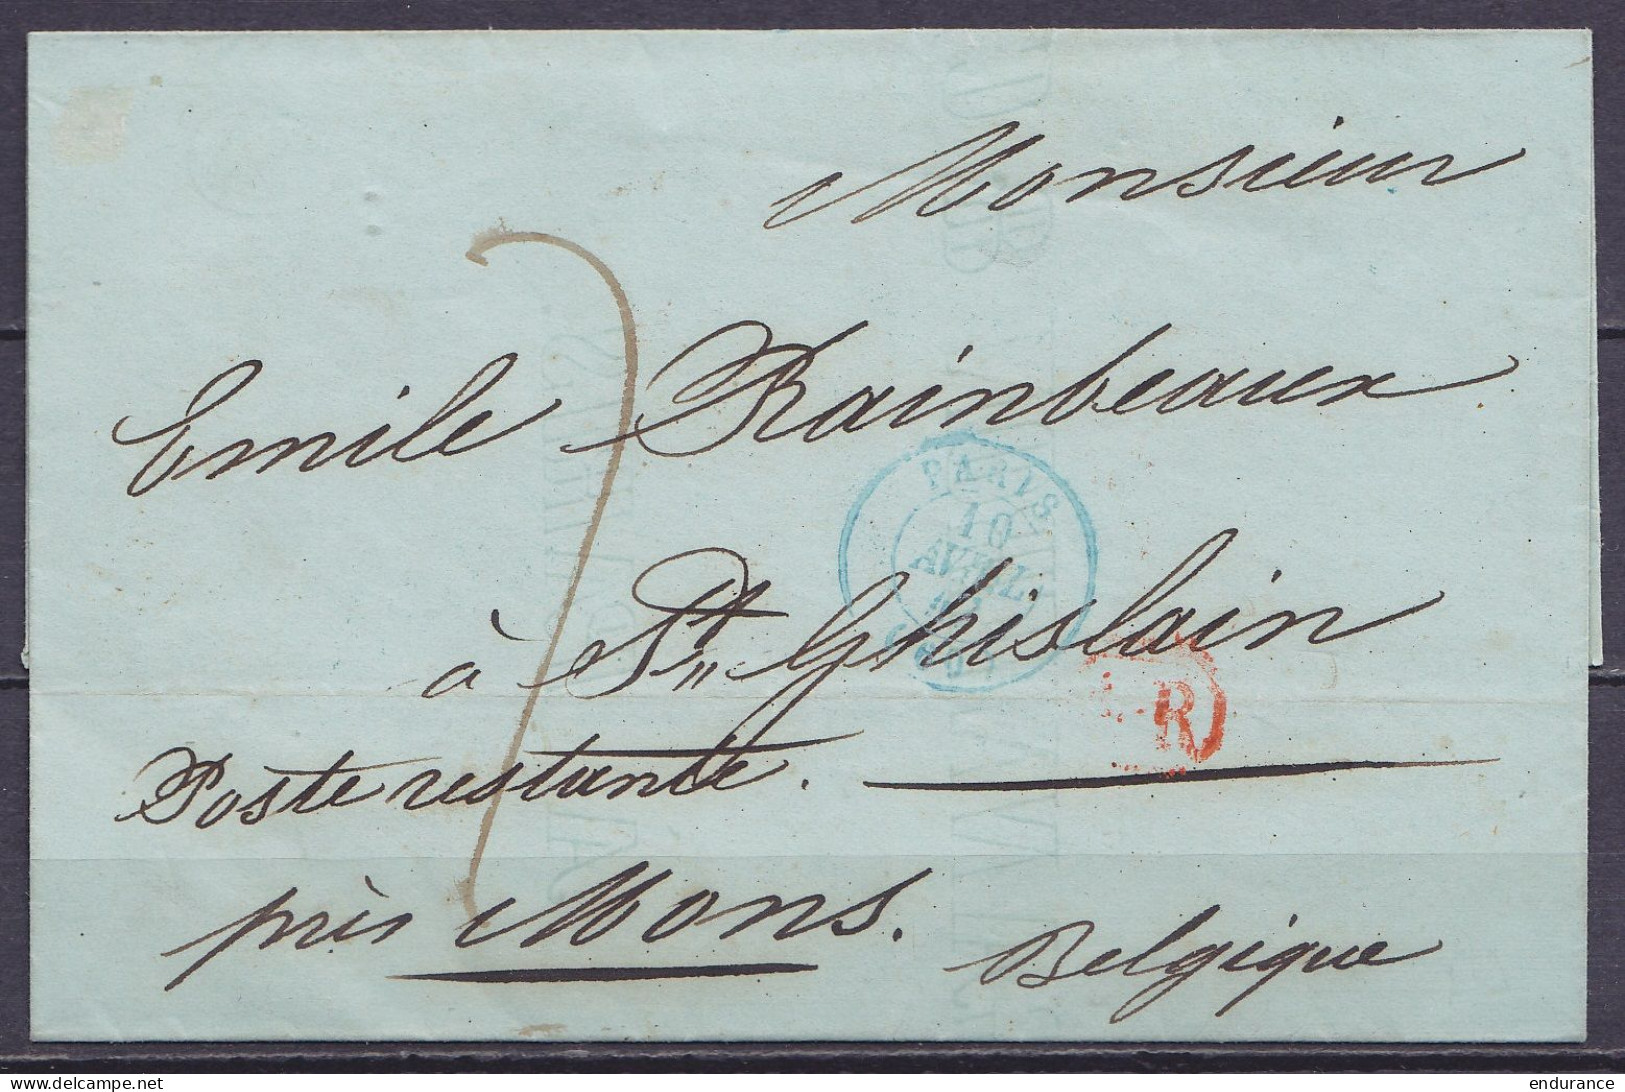 Monsieur
Emile Rainbeaux
à St Ghislain
Poste restante.
près Mons.
Belgique
PARIS
10
AVRIL
(60)
R
delcampe.net
endurance